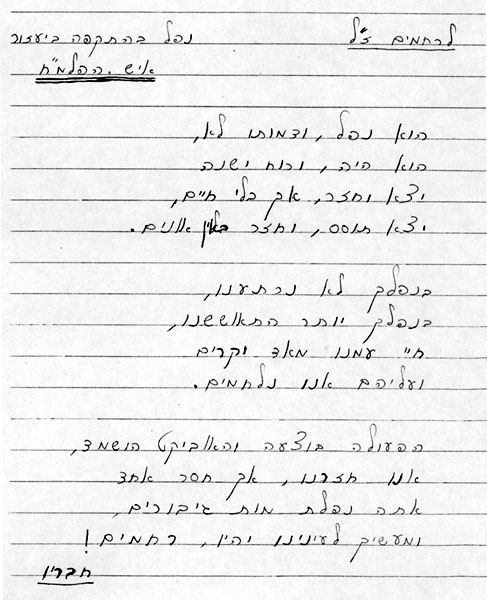 לרחמים ז"ל
נפל בהתקפה ביעזור
איש הפלמ"ח
הוא נפל, ודמותו לא,
הוא היה, ורוח ישנה
יצא וחזר, אך בלי חיים,
יצא תוסס, וחזר באין אונים.
בנפלך לא נרתענו,
בנפלך יותר התאוששנו,
חיי עמנו מאד יקרים
ועליהם אנו נלחמים.
הפעולה בוצעה והאוביקט הושמד,
אנו חזרנו, אך חסר אחד
אתה נפלת מות גיבורים,
ומעשיך לעינינו יהיו, רחמים!
חבריו